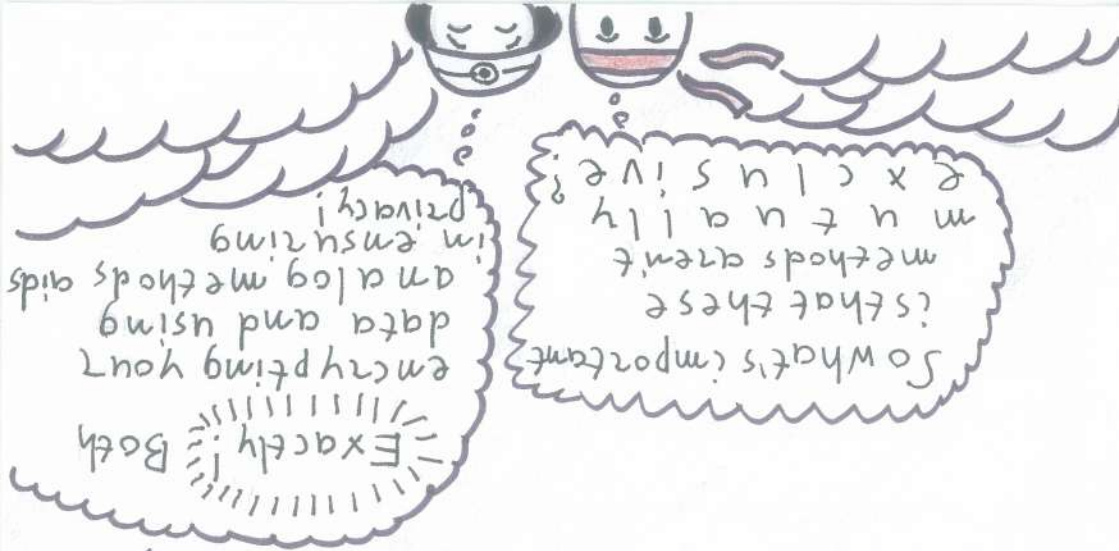 So what's important
is that these
methods aren't
mutually
exclusive?
Exactly! Both
encrypting your
data and using
analog methods aids
in ensuring
privacy!